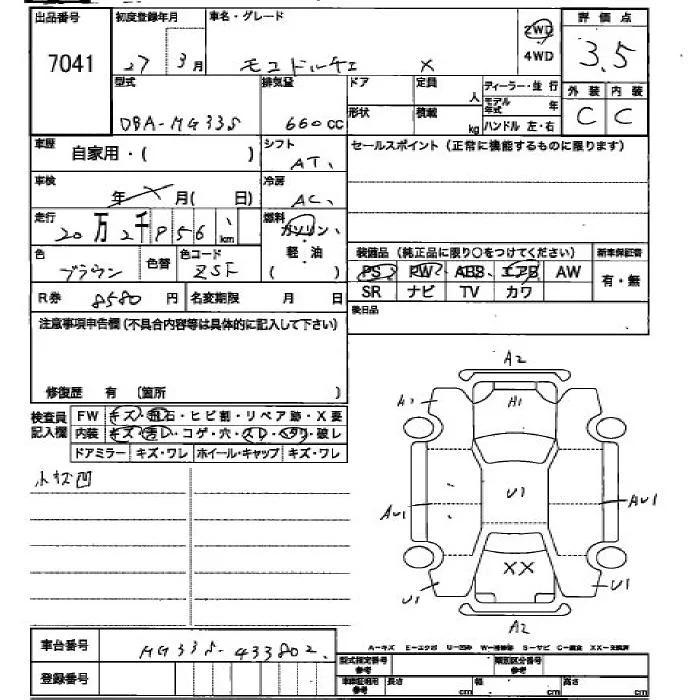 出品番号 初度登録年月 車名・グレード 評価点
7041 27 3月 モコドルチェ X 2WD 4WD 3.5
型式 排気量 ドア 定員 人 ディーラー・並行 外装 内装
DBA-MG33S 660cc 形状 積載 kg モデル年式 年 ハンドル 左・右 C C
車歴 自家用・( ) シフト AT セールスポイント(正常に機能するものに限ります)
車検 年 月( 日) 冷房 AC
走行 20万2千856 km 燃料 ガソリン 軽・油 ( )
色 ブラウン 色替 色コード ZSF
装備品(純正品に限り○をつけてください) 新車保証書
PS PW ABS エアB AW 有・無
SR ナビ TV カワ
R券 8580円 名変期限 月 日
後日品
注意事項申告欄(不具合内容等は具体的に記入して下さい)
修復歴 有 〔箇所 〕
検査員記入欄 FW キズ・飛石・ヒビ割・リペア跡・X要
内装 キズ・汚レ・コゲ・穴・スレ・ヘタリ・破レ
ドアミラー キズ・ワレ ホイール・キャップ キズ・ワレ
小キズ凹
A2
A1 A1
AU1 U1 AU1
XX
U1 U1
A2
車台番号 MG33S-433802
登録番号
A-キズ E-エクボ U-凹み W-補修跡 S-サビ C-腐食 XX-交換済
型式指定番号 参考 類別区分番号 参考
車検証明用 参考 長さ cm 幅 cm 高さ cm